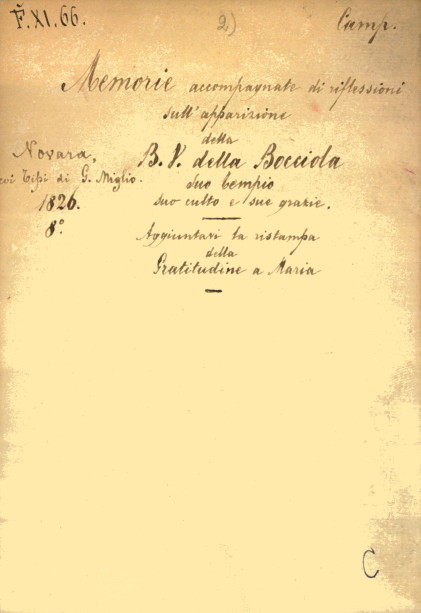 F.XI.66.
2)
Camp.
Memorie accompagnate di riflessioni
sull'apparizione
della
B. V. della Bocciola
suo tempio
suo culto e sue grazie.
Aggiuntavi la ristampa
della
Gratitudine a Maria
Novara,
coi Tipi di G. Miglio.
1826.
8°.
C